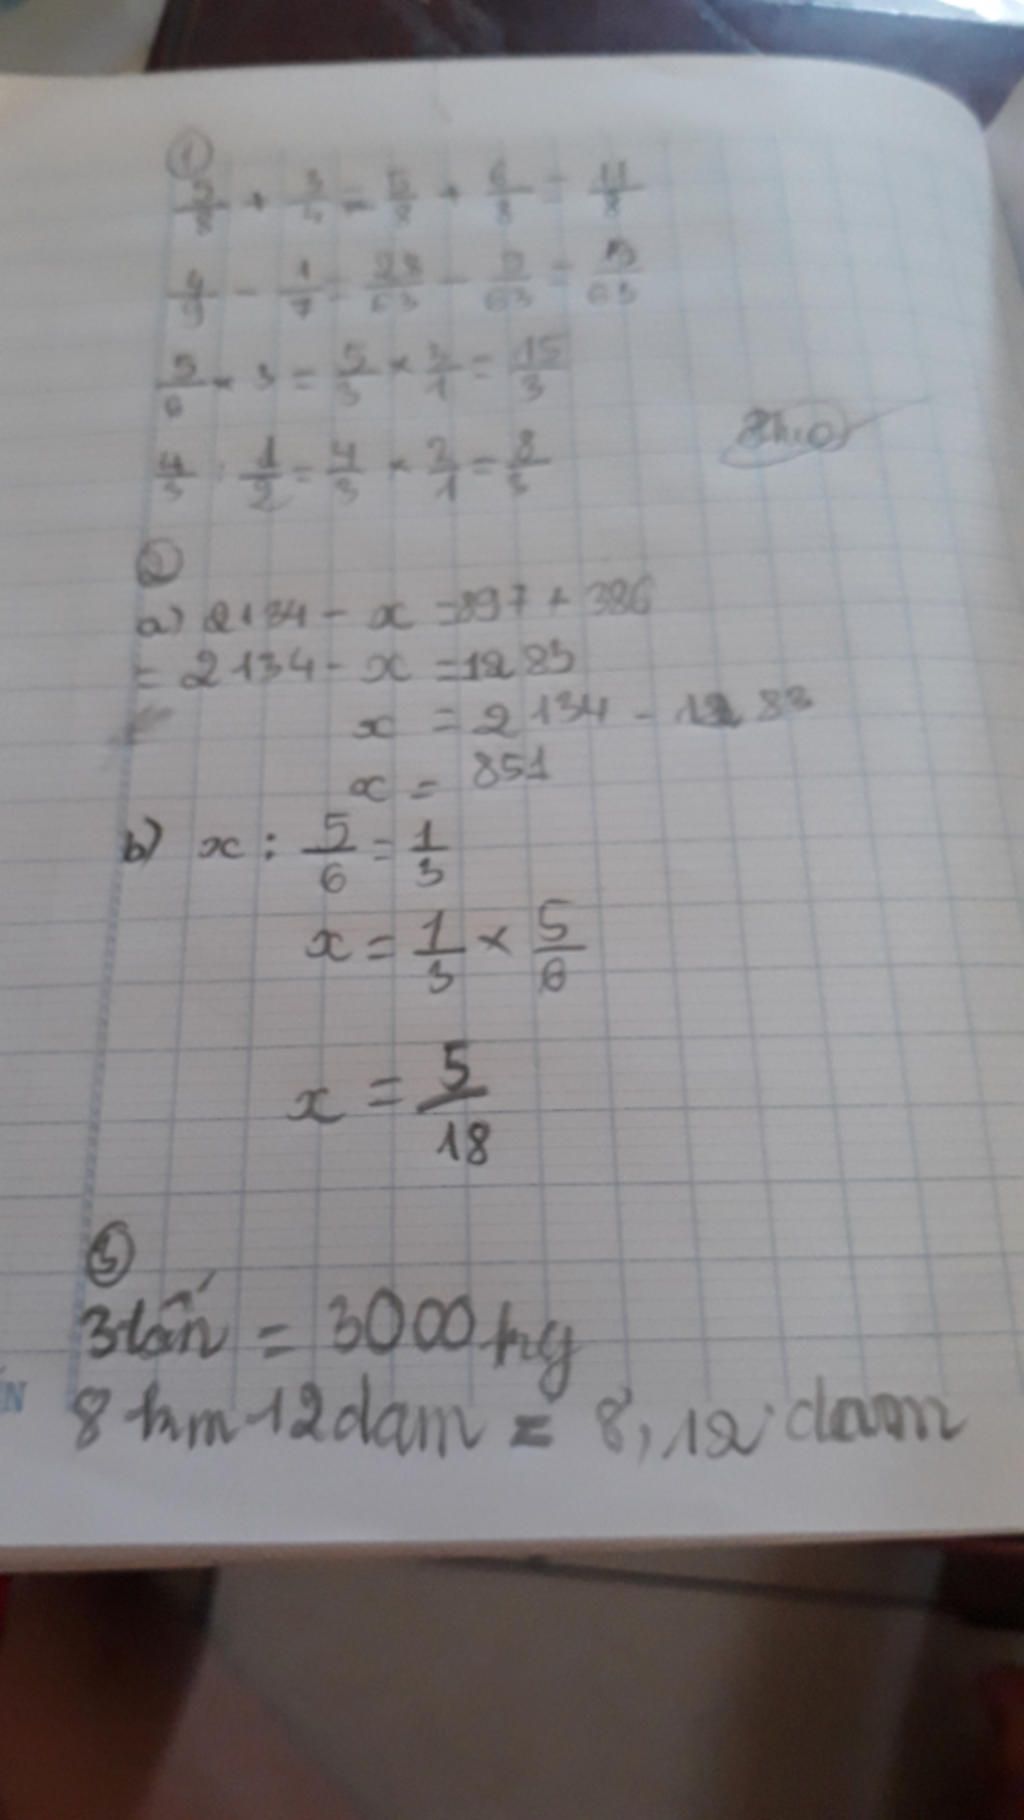 ①
5/8 + 3/4 = 5/8 + 6/8 = 11/8
4/9 - 1/7 = 28/63 - 9/63 = 19/63
5/6 × 3 = 5/3 × 3/1 = 15/3
4/3 : 1/2 = 4/3 × 2/1 = 8/3
②
a) 2134 - x = 897 + 386
= 2134 - x = 1283
x = 2134 - 1283
x = 851
b) x : 5/6 = 1/3
x = 1/3 × 5/6
x = 5/18
③
3 tấn = 3000 kg
8 hm 12 dam = 8,12 dam